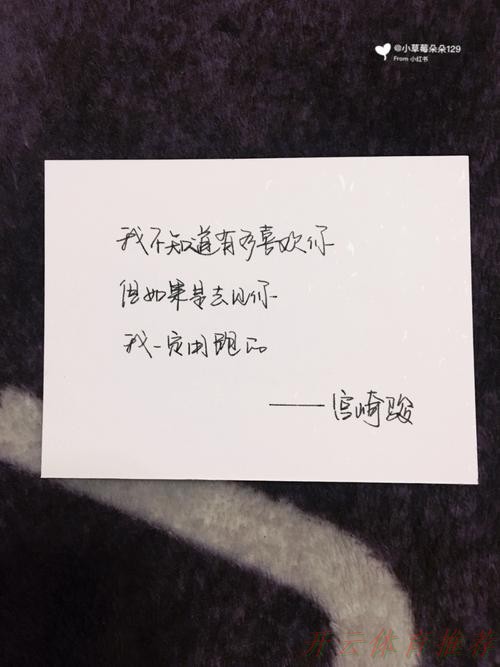 @小草莓朵朵129
From 小红书
我不知道有多喜欢你
但如果是去见你
我一定用跑的
——宫崎骏
开云体育推荐